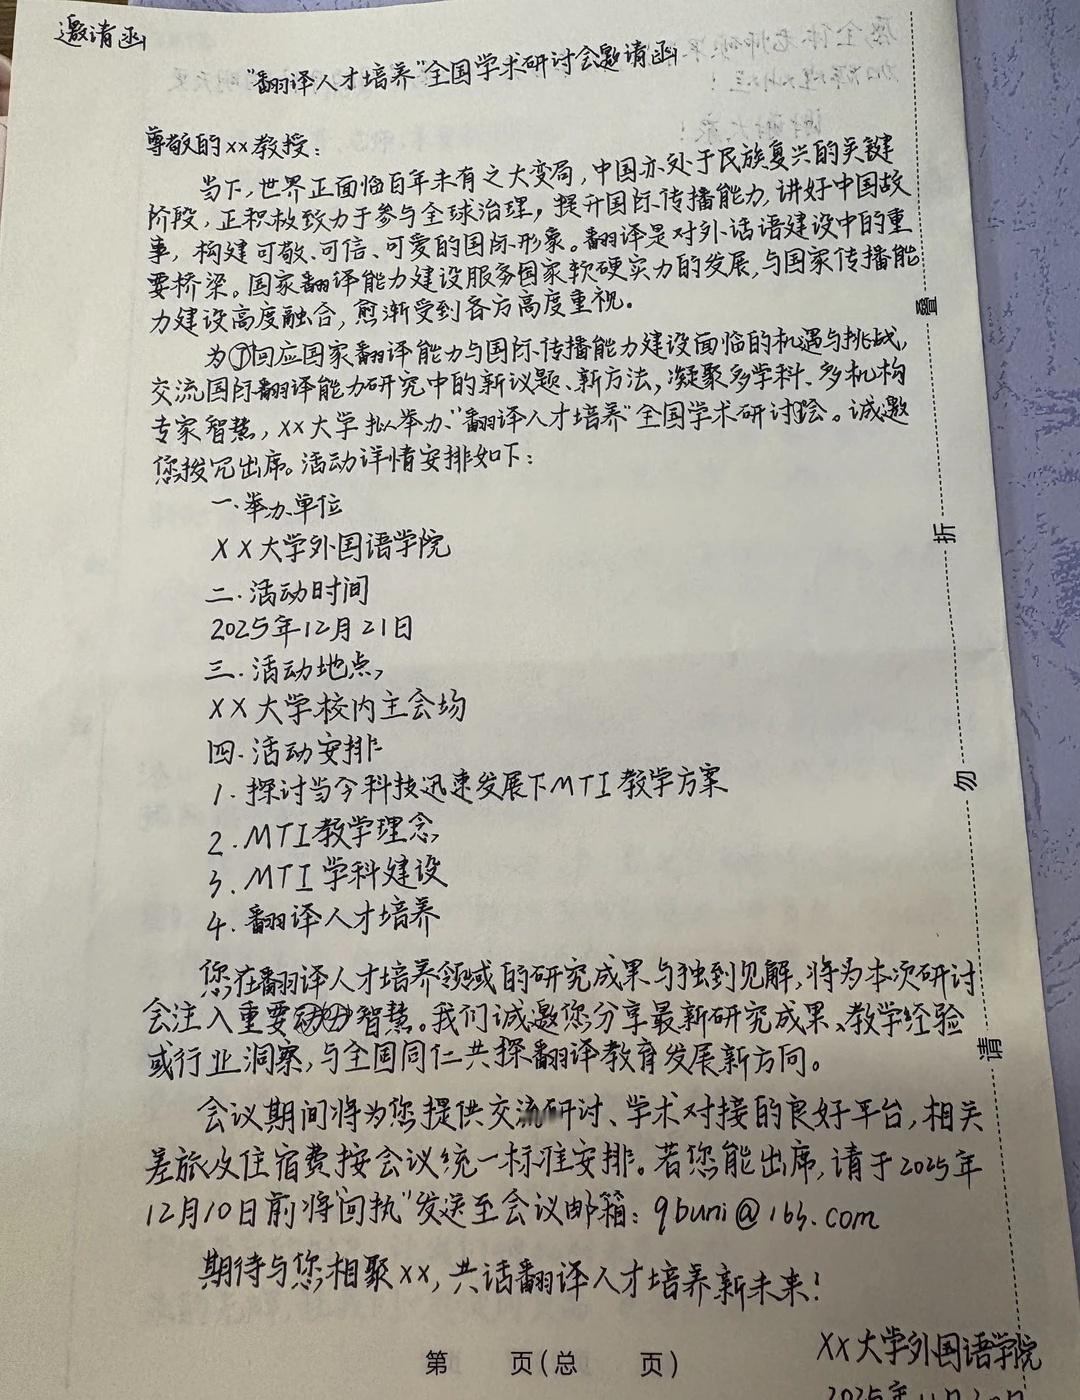 邀请函
"翻译人才培养"全国学术研讨会邀请函
尊敬的xx教授：
当下，世界正面临百年未有之大变局，中国亦处于民族复兴的关键
阶段，正积极致力于参与全球治理，提升国际传播能力，讲好中国故
事，构建可敬、可信、可爱的国际形象。翻译是对外话语建设中的重
要桥梁。国家翻译能力建设服务国家软硬实力的发展，与国家传播能
力建设高度融合，愈渐受到各方高度重视。
为回应国家翻译能力与国际传播能力建设面临的机遇与挑战，
交流国际翻译能力研究中的新议题、新方法，凝聚多学科、多机构
专家智慧，xx大学拟举办"翻译人才培养"全国学术研讨会。诚邀
您拨冗出席。活动详情安排如下：
一.举办单位
XX大学外国语学院
二.活动时间
2025年12月21日
三.活动地点
XX大学校内主会场
四.活动安排
1.探讨当今科技迅速发展下MTI教学方案
2.MTI教学理念
3.MTI学科建设
4.翻译人才培养
您在翻译人才培养领域的研究成果与独到见解，将为本次研讨
会注入重要智慧。我们诚邀您分享最新研究成果、教学经验
或行业洞察，与全国同仁共探翻译教育发展新方向。
会议期间将为您提供交流研讨、学术对接的良好平台，相关
差旅及住宿费按会议统一标准安排。若您能出席，请于2025年
12月10日前将"回执"发送至会议邮箱：qbuni@163.com
期待与您相聚xx，共话翻译人才培养新未来！
XX大学外国语学院
2025年11月20日
第 页（总 页）
请勿折叠